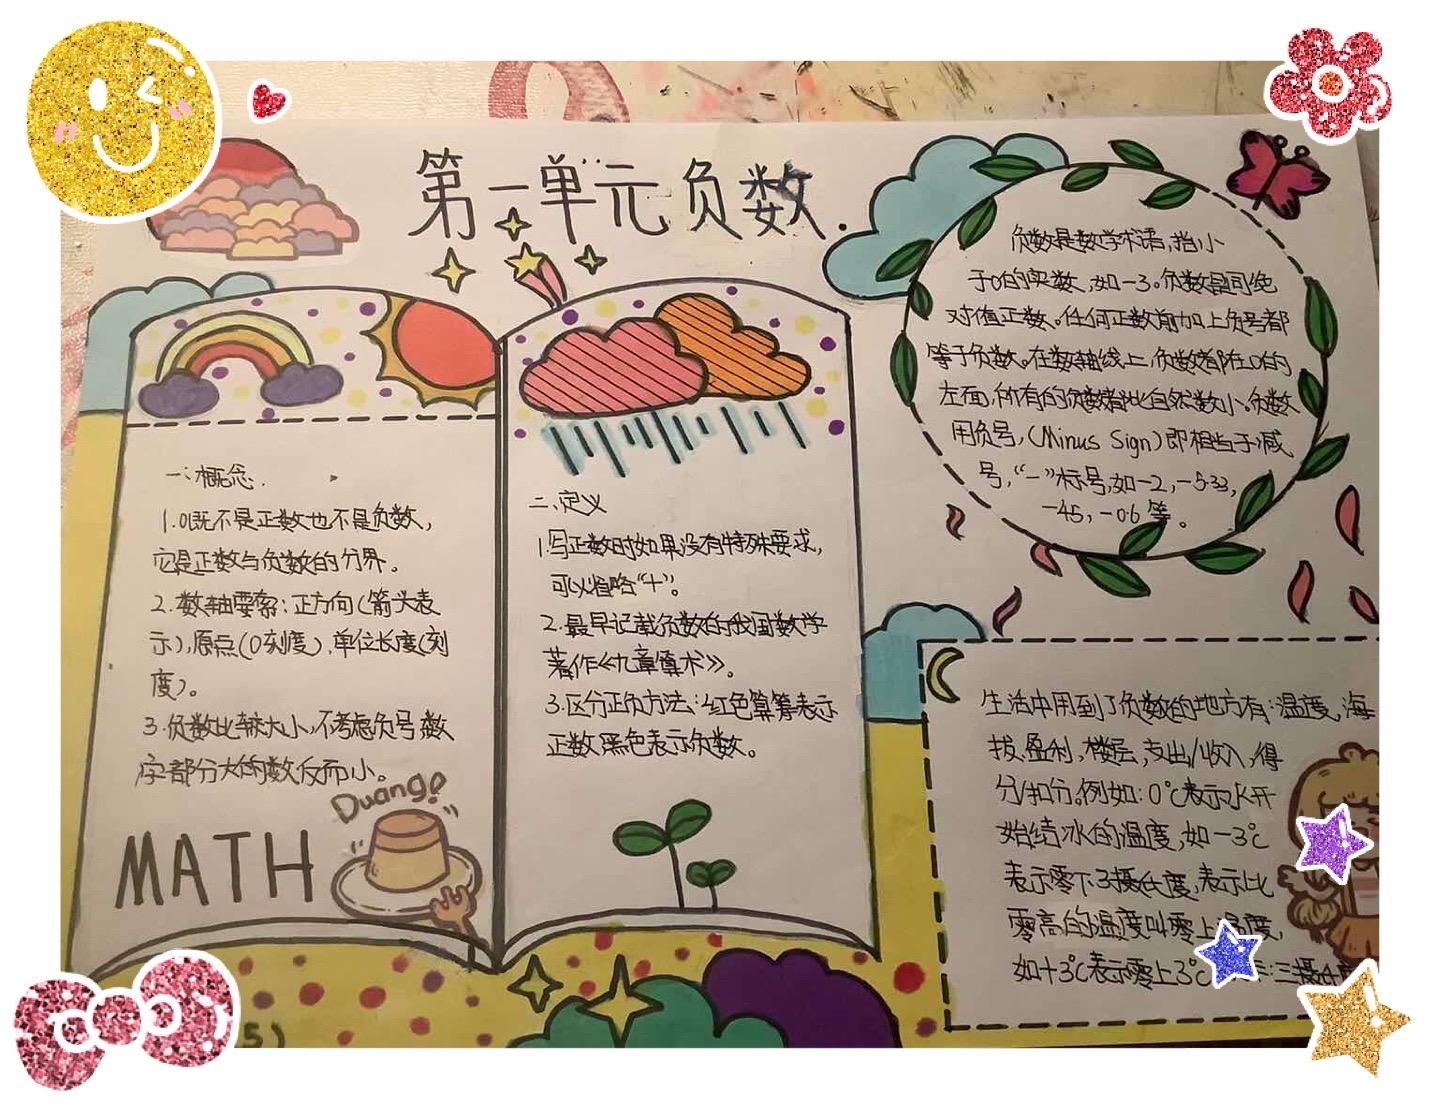 第一单元负数.
一、概念.
1.0既不是正数也不是负数,
它是正数与负数的分界。
2.数轴要索:正方向(箭头表
示),原点(0刻度),单位长度(刻
度)。
3.负数比较大小,不考虑负号,数
字部分大的数反而小。
Duang!
MATH
二、定义
1.写正数时如果没有特殊要求,
可以省略“十”。
2.最早记载负数的我国数学
著作《九章算术》。
3.区分正负方法:红色算筹表示
正数黑色表示负数。
负数是数学术语,指小
于0的实数,如一3。负数是同绝
对值正数。任何正数前加上负号都
等于负数。在数轴线上,负数都在0的
左面,所有的负数都比自然数小。负数
用负号,(Minus Sign)即相当于减
号,“一”标号,如一2,一5.33,
一45,一0.6等。
生活中用到了负数的地方有:温度,海
拔,盈利,楼层,支出/收入,得
分/扣分。例如:0℃表示水开
始结冰的温度,如一3℃
表示零下3摄氏度,表示比
零高的温度叫零上温度,
如十3℃表示零上3℃
三摄
5)